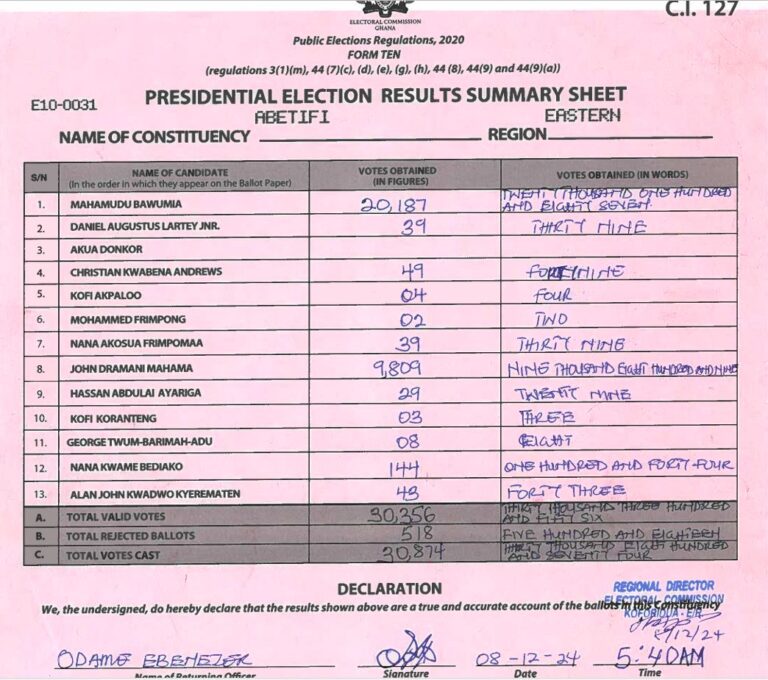 C.I. 127
ELECTORAL COMMISSION
GHANA
Public Elections Regulations, 2020
FORM TEN
(regulations 3(1)(m), 44 (7)(c), (d), (e), (g), (h), 44 (8), 44(9) and 44(9)(a))
E10-0031 PRESIDENTIAL ELECTION RESULTS SUMMARY SHEET
ABETIFI EASTERN
NAME OF CONSTITUENCY REGION
S/N NAME OF CANDIDATE (In the order in which they appear on the Ballot Paper) VOTES OBTAINED (IN FIGURES) VOTES OBTAINED (IN WORDS)
1. MAHAMUDU BAWUMIA 20,187 TWENTY THOUSAND ONE HUNDRED AND EIGHTY SEVEN.
2. DANIEL AUGUSTUS LARTEY JNR. 39 THIRTY NINE
3. AKUA DONKOR
4. CHRISTIAN KWABENA ANDREWS 49 FORTYNINE
5. KOFI AKPALOO 04 FOUR
6. MOHAMMED FRIMPONG 02 TWO
7. NANA AKOSUA FRIMPOMAA 39 THIRTY NINE
8. JOHN DRAMANI MAHAMA 9,809 NINE THOUSAND EIGHT HUNDRED AND NINE
9. HASSAN ABDULAI AYARIGA 29 TWENTY NINE
10. KOFI KORANTENG 03 THREE
11. GEORGE TWUM-BARIMAH-ADU 08 EIGHT
12. NANA KWAME BEDIAKO 144 ONE HUNDRED AND FORTY-FOUR
13. ALAN JOHN KWADWO KYEREMATEN 43 FORTY THREE
A. TOTAL VALID VOTES 30,356 THIRTY THOUSAND THREE HUNDRED AND FIFTY SIX
B. TOTAL REJECTED BALLOTS 518 FIVE HUNDRED AND EIGHTEEN
C. TOTAL VOTES CAST 30,874 THIRTY THOUSAND EIGHT HUNDRED AND SEVENTY FOUR
DECLARATION
REGIONAL DIRECTOR
ELECTORAL COMMISSION
KOFORIDUA - E/R
We, the undersigned, do hereby declare that the results shown above are a true and accurate account of the ballots in this Constituency
8/12/24
ODAME EBENEZER 08-12-24 5:40AM
Name of Returning Officer Signature Date Time